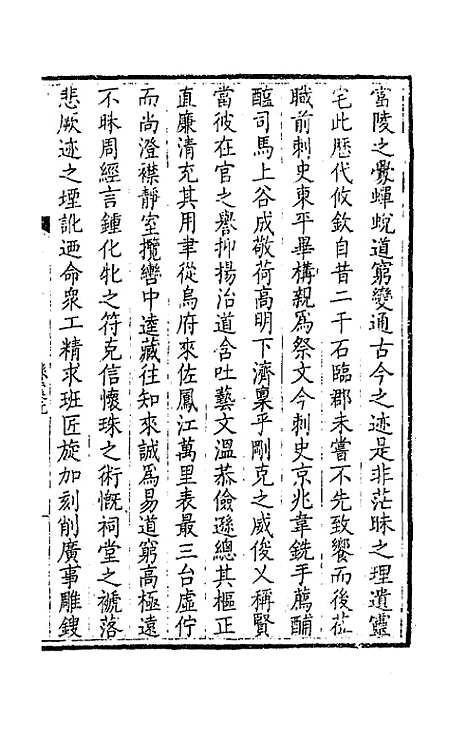 當陵之釁蟬蛻道窮變通古今之迹是非茫昧之理遺靈
宅此歷代攸欽自昔二千石臨郡未嘗不先致饗而後莅
職前刺史東平畢構親爲祭文今刺史京兆韋銑手薦酺
醢司馬上谷成敬荷高明下濟稟乎剛克之威俊乂稱賢
當彼在官之譽抑揚冶道含吐藝文溫恭儉遜總其樞正
直廉清充其用聿從烏府來佐鳳江萬里表最三台虛佇
而尚澄襟靜室攬轡中逵藏往知來誠爲易道窮高極遠
不昧周經言鍾化牝之符克信懷珠之術慨祠堂之褫落
悲厥迹之堙訛迺命衆工精求班匠旋加刻削廣事雕鎪